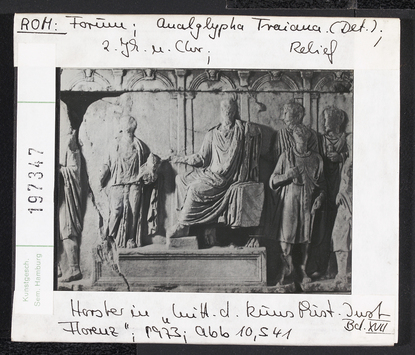 ROM: Forum; Analglypha Traiana (Det.);
2. Jh. n. Chr.; Relief
197347
Kunstgesch.
Sem. Hamburg
Horster in "Mitt. d. Kunsthist. Inst
Florenz"; 1973; Abb 10, S41
Bd. XVII